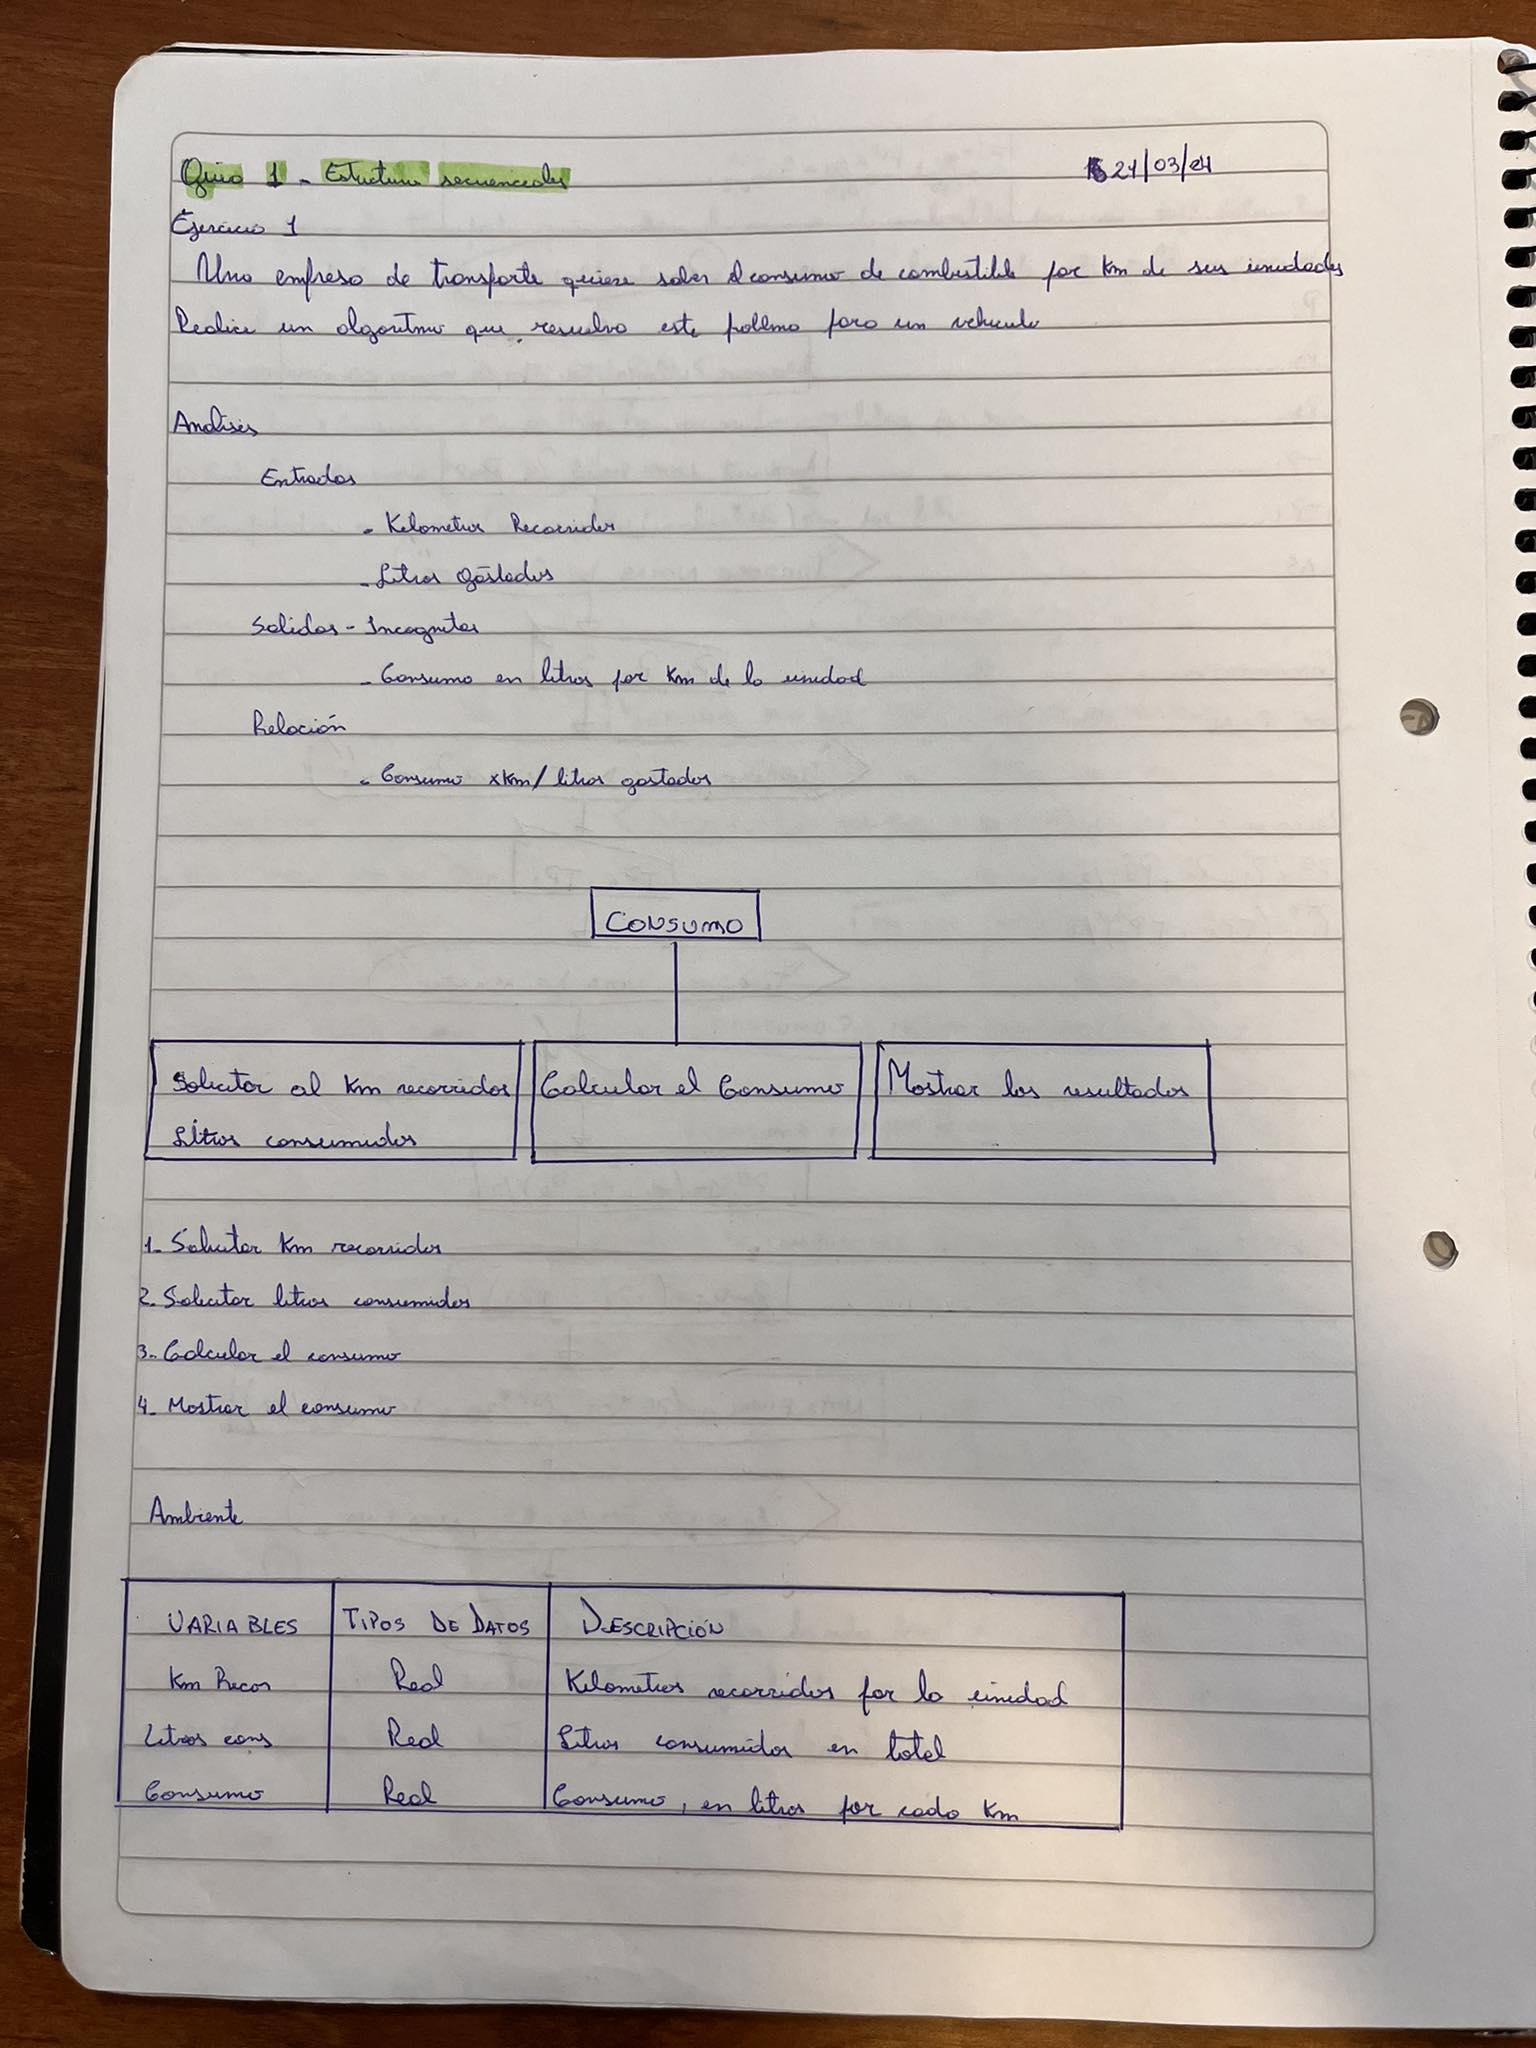 Guia 1 - Estructura secuenciales
21/03/24
Ejercicio 1
Una empresa de transporte quiere saber el consumo de combustible por Km de sus unidades
Realice un algoritmo que resuelva este poblema para un vehiculo
Analisis
Entradas
- Kilometros Recorridos
- Litros gastados
Salidas - Incognitas
- Consumo en litros por Km de la unidad
Relación
- Consumo xKm/litros gastados
CONSUMO
Solicitar al Km recorridos
Litros consumidos
Calcular el Consumo
Mostrar los resultados
1- Solicitar Km recorridos
2- Solicitar litros consumidos
3- Calcular el consumo
4- Mostrar el consumo
Ambiente
VARIABLES TIPOS DE DATOS DESCRIPCIÓN
Km Recor Real Kilometros recorridos por la unidad
Litros cons Real Litros consumidos en total
Consumo Real Consumo, en litros por cada Km